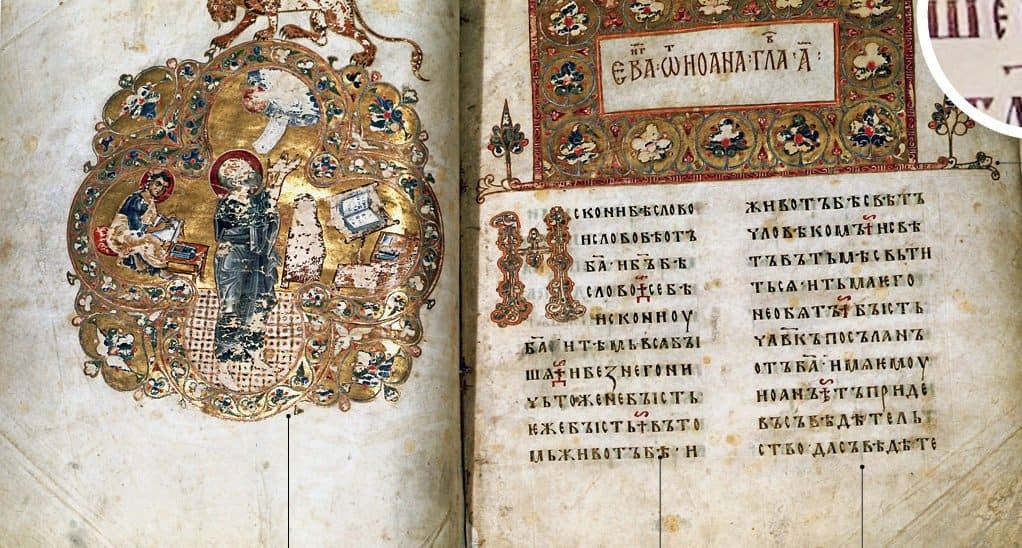 ЕВА·Ѡ҃ИОАНА·ГЛА·А҃·
ИСКОНИБѢСЛОВО
ИСЛОВОБѢОТЪ
БА҃·ИБЪ҃БѢ
СЛОВО·СЕБѢ
ИСКОНИОУ
БА҃·ИТѢМЬВСАБЫ
ШѦ·ИБЕЗНЕГОНИ
ЧЬТОЖЕНЕБЫСТЬ
ѤЖЕБЫСТЬ·ВЪТО
МЬЖИВОТЪБѢ·И
ЖИВОТЪБѢСВѢТЪ
ЧЛОВѢКОМЪ·ИСВѢ
ТЪВЪТЬМѢСВЬТИ
ТЬСѦ·ИТЬМАѤГО
НЕОБѦТЪ·БЫСТЬ
ЧЛ҃ВКЪПОСЪЛАНЪ
ОТЪБА҃·ИМѦѤМОУ
ИОАНЪ·ТЪПРИДЕ
ВЪСЪВѢДѢТЕЛЬ
СТВО·ДАСЪВѢДѢТЕ